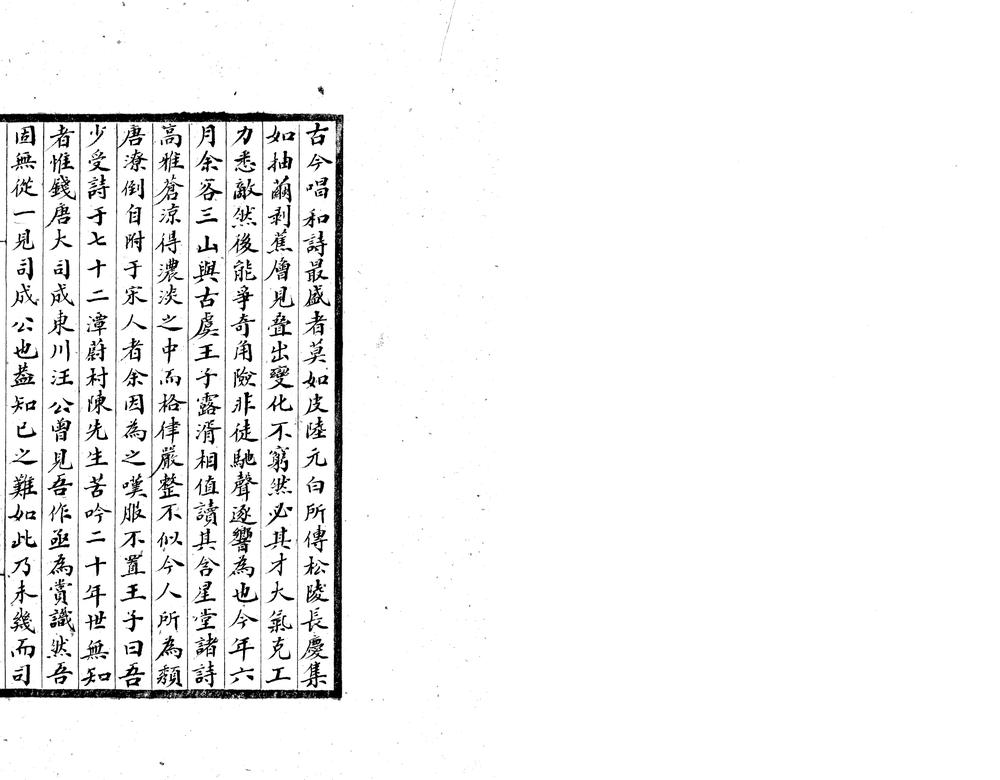 古今唱和詩最盛者莫如皮陸元白所傳松陵長慶集
如抽繭剥蕉層見疊出變化不窮然必其才大氣克工
力悉敵然後能爭奇角險非徒馳聲逐響為也今年六
月余客三山與古虞王子露湑相值讀其含星堂諸詩
高雅蒼涼得濃淡之中而格律嚴整不似今人所為頽
唐潦倒自附于宋人者余因為之嘆服不置王子曰吾
少受詩于七十二潭蔚村陳先生苦吟二十年世無知
者惟錢唐大司成東川汪公曾見吾作亟為賞識然吾
固無從一見司成公也葢知已之難如此乃未幾而司